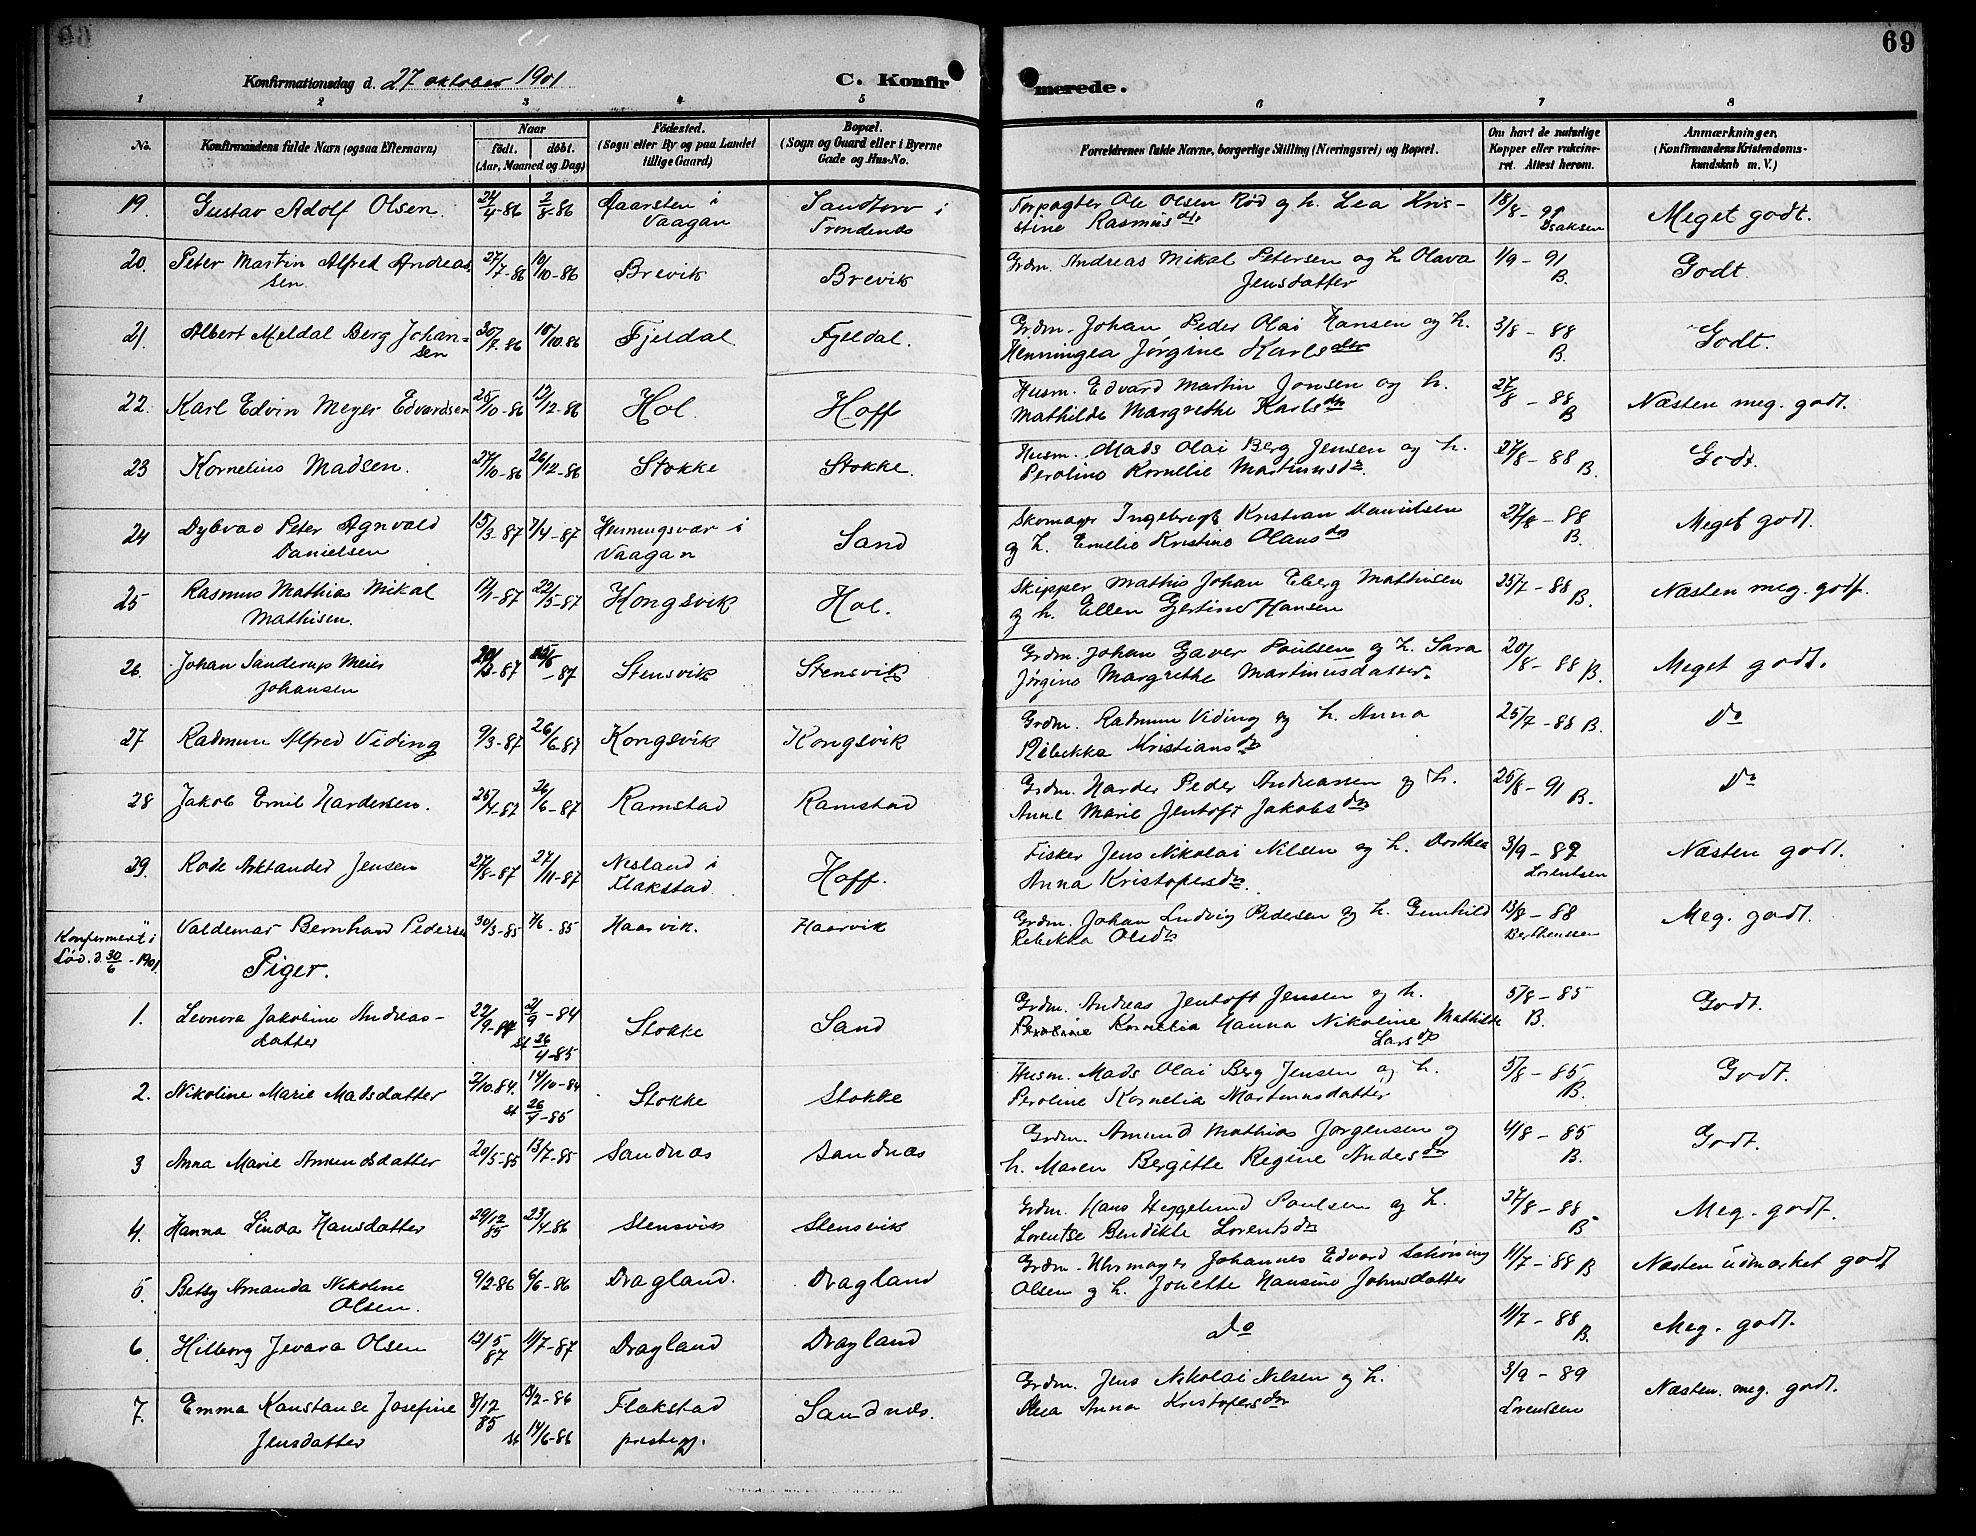 69
Konfirmationsdag d. 27 oktober 1901
C. Konfirmerede.
1 2 3 4 5 6 7 8
No.
Konfirmandens fulde Navn (ogsaa Efternavn)
Naar
født. døbt.
(Aar, Maaned og Dag)
Fødested.
(Sogn eller By og paa Landet
tillige Gaard)
Bopæl.
(Sogn og Gaard eller i Byerne
Gade og Hus-No.
Forældrenes fulde Navne, borgerlige Stilling (Næringsvei) og Bopæl.
Om havt de naturlige
Kopper eller vakcine-
ret. Attest herom.
Anmærkninger.
(Konfirmandens Kristendoms-
kundskab m. V.)
19. Gustav Adolf Olsen. 24/4-86 2/8-86 i Sandtorv i Forpagter Ole Olsen Rød og h. Lea Kris- 18/8-91 Meget godt.
Vaagan Trondenæs stine Rasmusdtr Isaksen
20. Peter Martin Alfred Andreas- 27/7-86 10/10-86 Brevik Brevik Grdm. Andreas Mikal Petersen og h. Olava 1/9-91 Godt.
sen. Jensdatter B.
21. Albert Meldal Berg Johan- 30/7-86 10/10.86 Fjeldal. Fjeldal. Grdm. Johan Peder Olai Hansen og h. 3/8-88 Godt.
sen Henningea Jørgine Karlsdtr B.
22. Karl Edvin Meyer Edvardsen 25/10-86 12/12-86 Hol. Hoff Husm. Edvard Martin Jonsen og h. 27/8-88 Næsten meg. godt.
Mathilde Margrethe Karlsdtr B
23 Kornelius Madsen. 27/10-86 26/12-86 Stokke Stokke. Husm. Mads Olai Berg Jensen og h. 27/8-88 B. Godt.
Peroline Kornelie Martinusdr.
24 Dybvad Peter Agnvald 15/3-87 7/4-87 Henningsvær i Sand Skomager Ingebregt Kristian Danielsen 27/8-88 Meget godt.
Danielsen Vaagan og h. Emelie Kristine Olausdr B.
25 Rasmus Mathias Mikal 22/5-87 Kongsvik Hol. Skipper Mathis Johan Eberg Mathisen 25/7-88 B. Næsten meg. godt.
Mathisen. og h. Ellen Gjertine Hansen
26. Johan Sanderup Meier -87 -87 Stensvik Stensvik Grdm. Johan Gjæver Poulsen og h. Sara 20/8-88 B. Meget godt.
Johansen Jørgine Margrethe Martinusdatter.
27 Radmun Alfred Viding 9/3-87 26/6-87 Kongsvik Kongsvik Grdm. Radmun Viding og h. Anna 25/7-88 B. Do
Rebekka Kristiansdr
28 Jakob Emil Hardersen. 25/4-87 26/6-87 Ramstad Ramstad Grdm. Harder Peder Andreassen og h. 25/8-91 B. Do
Anne Marie Jentoft Jakobsdr
29. Rode Arktander Jensen 27/8-87 27/11-87 Nesland i Hoff. Fisker Jens Nikolai Nilsen og h. Dorthea 3/9-89 Næsten godt.
Flakstad Anna Kristofersdr. Lorentsen
Konfirmert i Valdemar Bernhard Pedersen 30/3-85 7/6-85 Haarvik. Haarvik Grdm. Johan Ludvig Pedersen og h. Gunhild 13/8-88 Meg. godt.
Lød. d. 30/6-1901 Rebekka Olsdr Berthenssen
Piger.
1. Leonora Jakobine Andreas- 22/9-84 21/9-84 Stokke Sand Grdm. Andreas Jentoft Jensen og h. 5/8-85 Godt.
datter st 26/4-85 Peroline Kornelia Hanna Nikoline Mathilde B.
Larsdr
2. Nikoline Marie Madsdatter 2/10.84. 14/10-84 Stokke Stokke Husm. Mads Olai Berg Jensen og h. 5/8-85 Godt.
st 26/4-85 Peroline Kornelia Martinusdatter B.
3 Anna Marie Amundsdatter 20/5-85 13/7-85 Sandnæs Sandnæs Grdm. Amund Mathias Jørgensen og 4/8-85 Godt.
h. Maren Bergitte Regine Andersdtr B.
4. Hanna Linda Hansdatter 29/12 85 23/4-86 Stensvik Stensvik Grdm. Hans Heggelund Poulsen og h. 27/8-88 Meg. godt.
Lorentse Bendikte Lorentsdr B
5. Betsy Amanda Nikoline 9/2-86 6/6-86 Dragland. Dragland Grdm. Uhrmager Johannes Edvard Schøning 11/7-88 B Næsten udmærket godt
Olsen. Olsen og h. Jonette Hansine Johnsdatter
6 Hilborg Jevara Olsen 12/5 87 11/7-87 Dragland Dragland Do 11/7-88 B. Meg. godt.
7. Emma Konstanse Josefine 8/12 85 13/2-86 Flakstad Sandnæs. Grdm. Jens Nikolai Nilsen og h. 3/9-89 Næsten. meg. godt.
Jensdatter st 14/6-86 prestegj. Anna Kristofersdtr Lorentsen